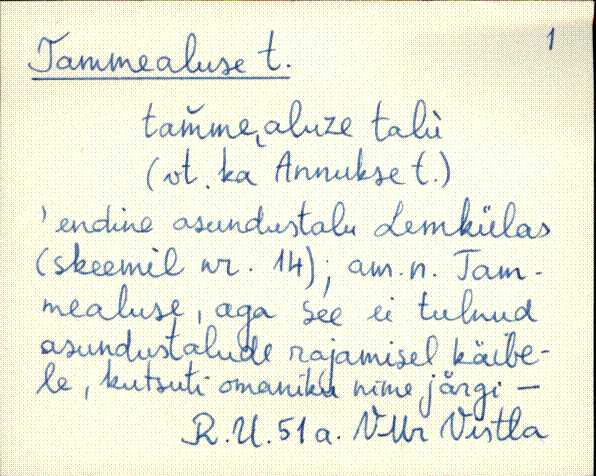 Tammealuse t. 1
tam̆me‚aluze talù
(vt. ka Annukse t.)
'endine asundustalu Lemkülas
(skeemil nr. 14); am. n. Tam-
mealuse, aga see ei tulnud
asundustalude rajamisel käibe-
le, kutsuti omaniku nime järgi —
R. U. 51 a. VMr Vistla